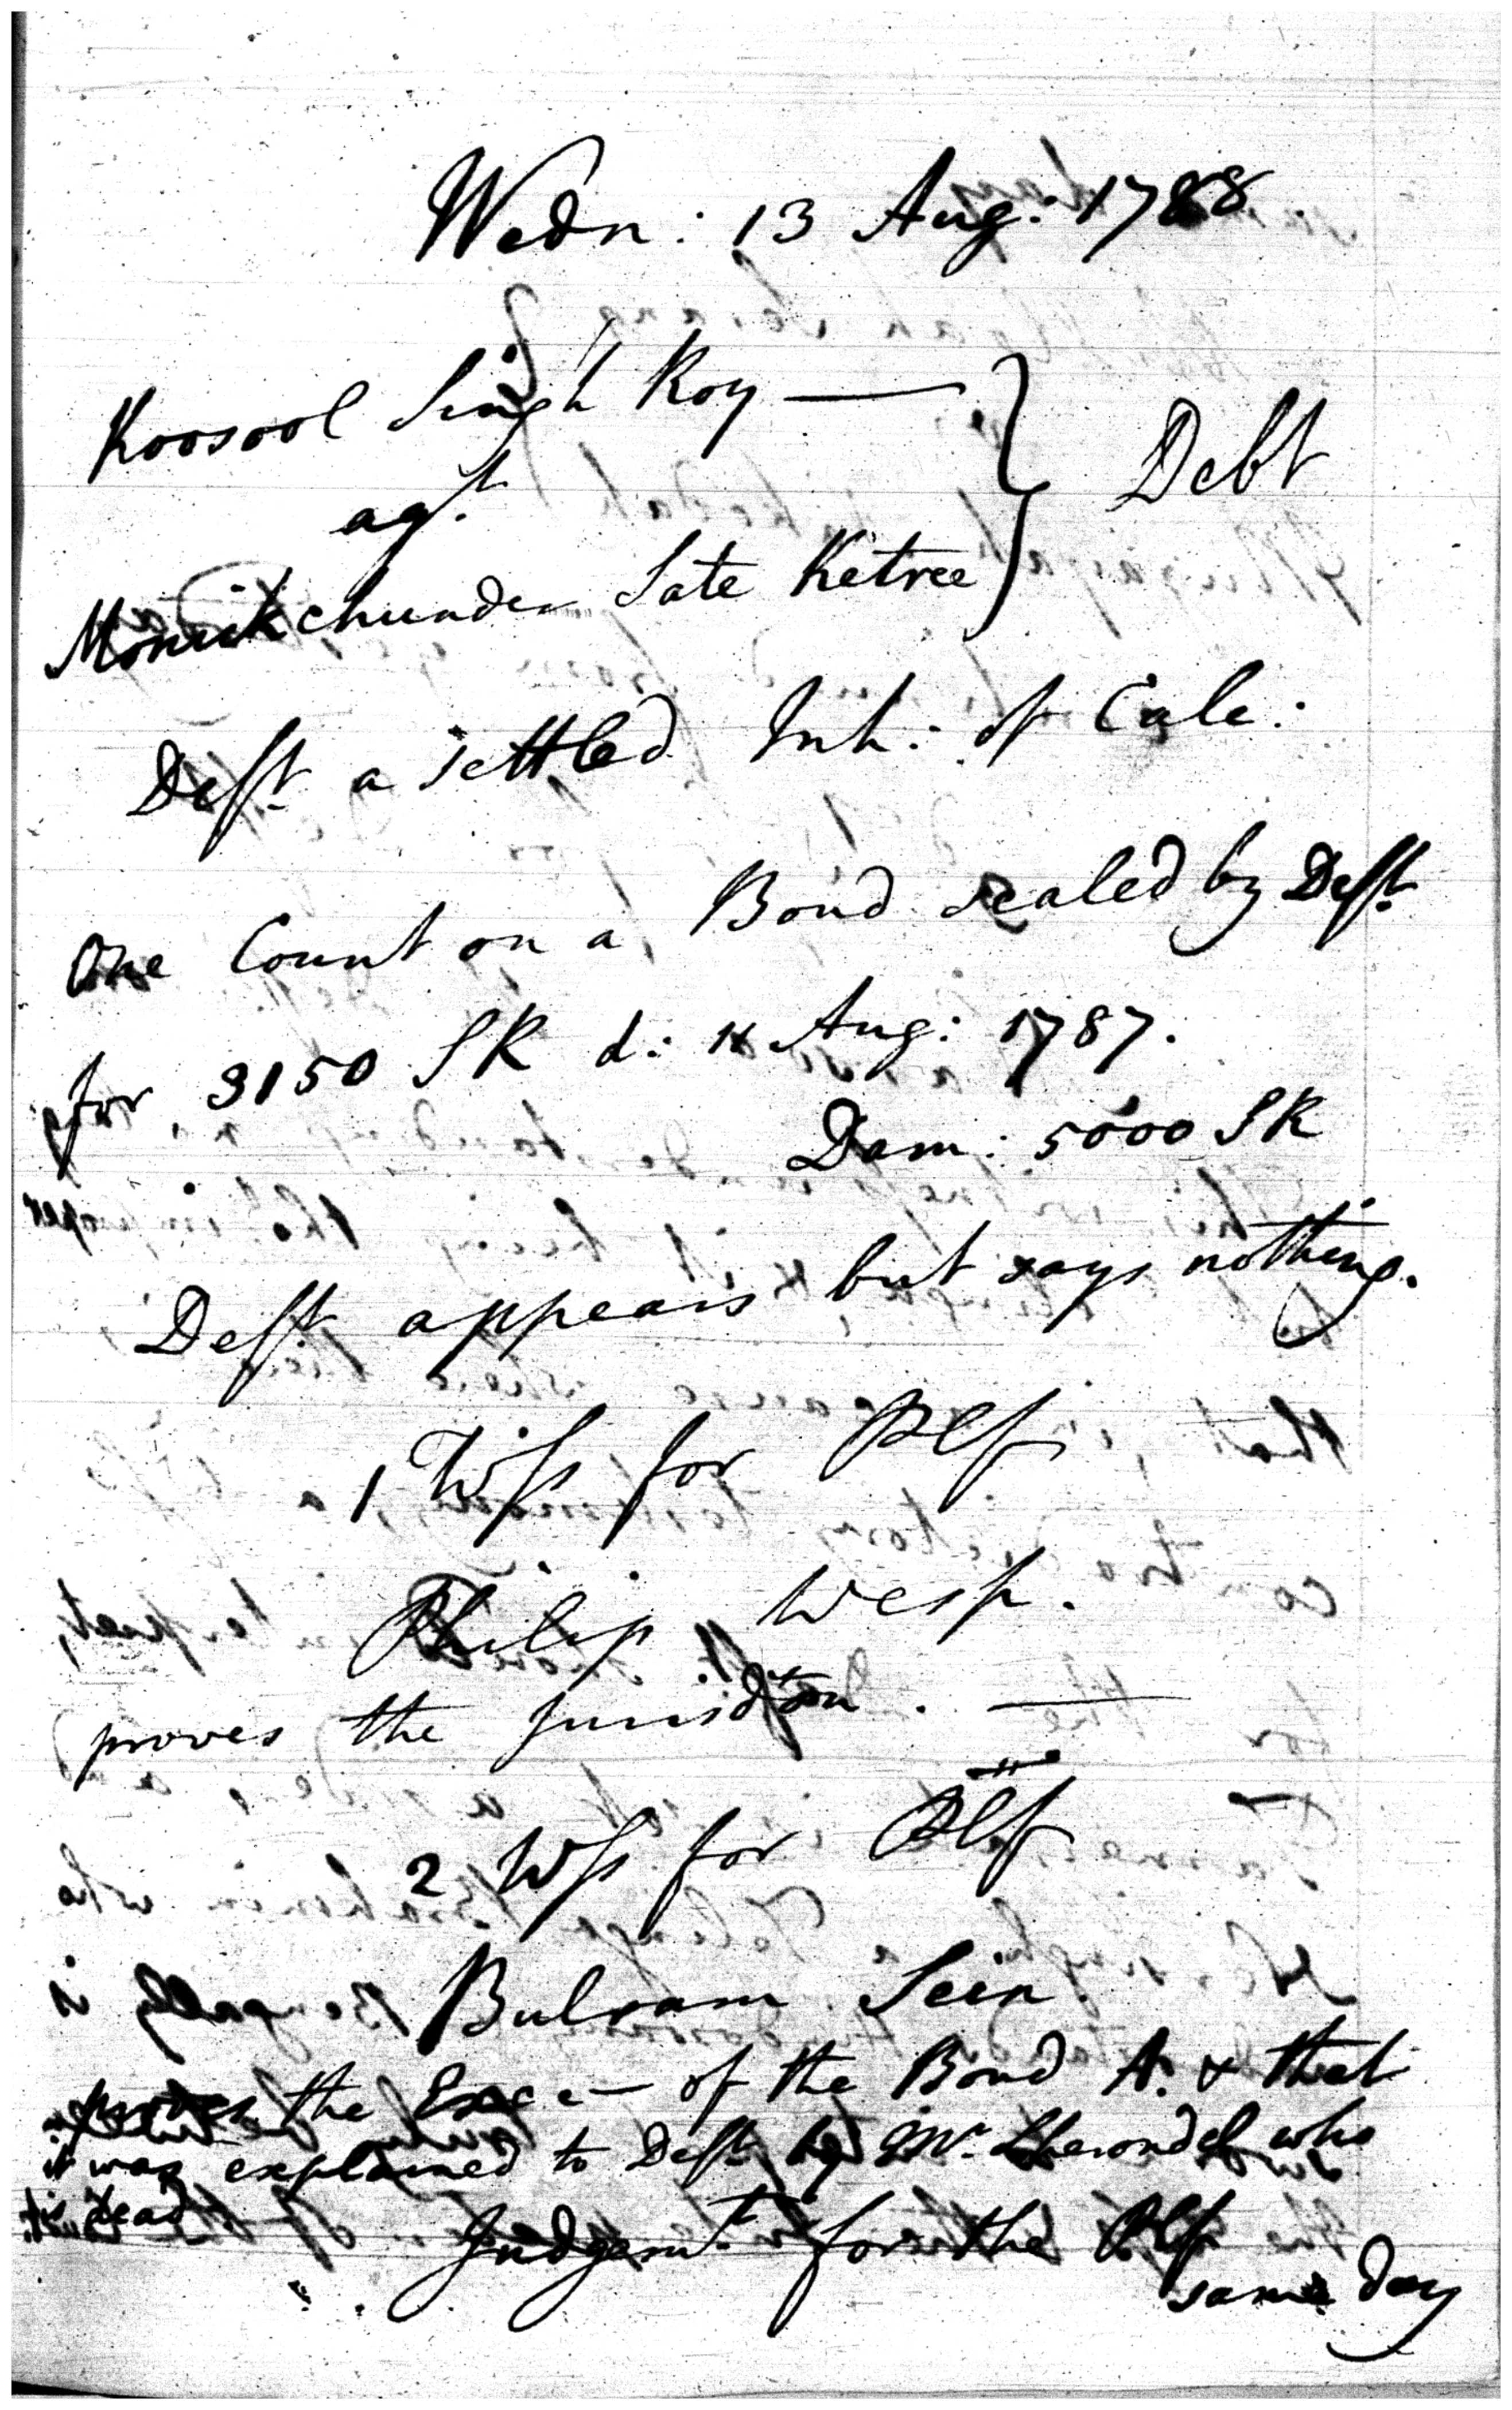 Wedn: 13 Aug: 1788
Koosool Singh Roy —
agt.
Monickchunder Sate Ketree
Debt
Deft. a settled Inh: of Calc:
One Count on a Bond sealed by Deft.
for 3150 SR d: 11 Aug: 1787.
Dam: 5000 SR
Deft. appears but says nothing.
1 Wss for Plf
Philip West.
proves the Jurisdton. —
2 Wss for Plf
Bulram Sein
proves the Exec— of the Bond A. & that
it was explained to Deft. by Mr. who
is dead
Judgemt. for the Plf
same day